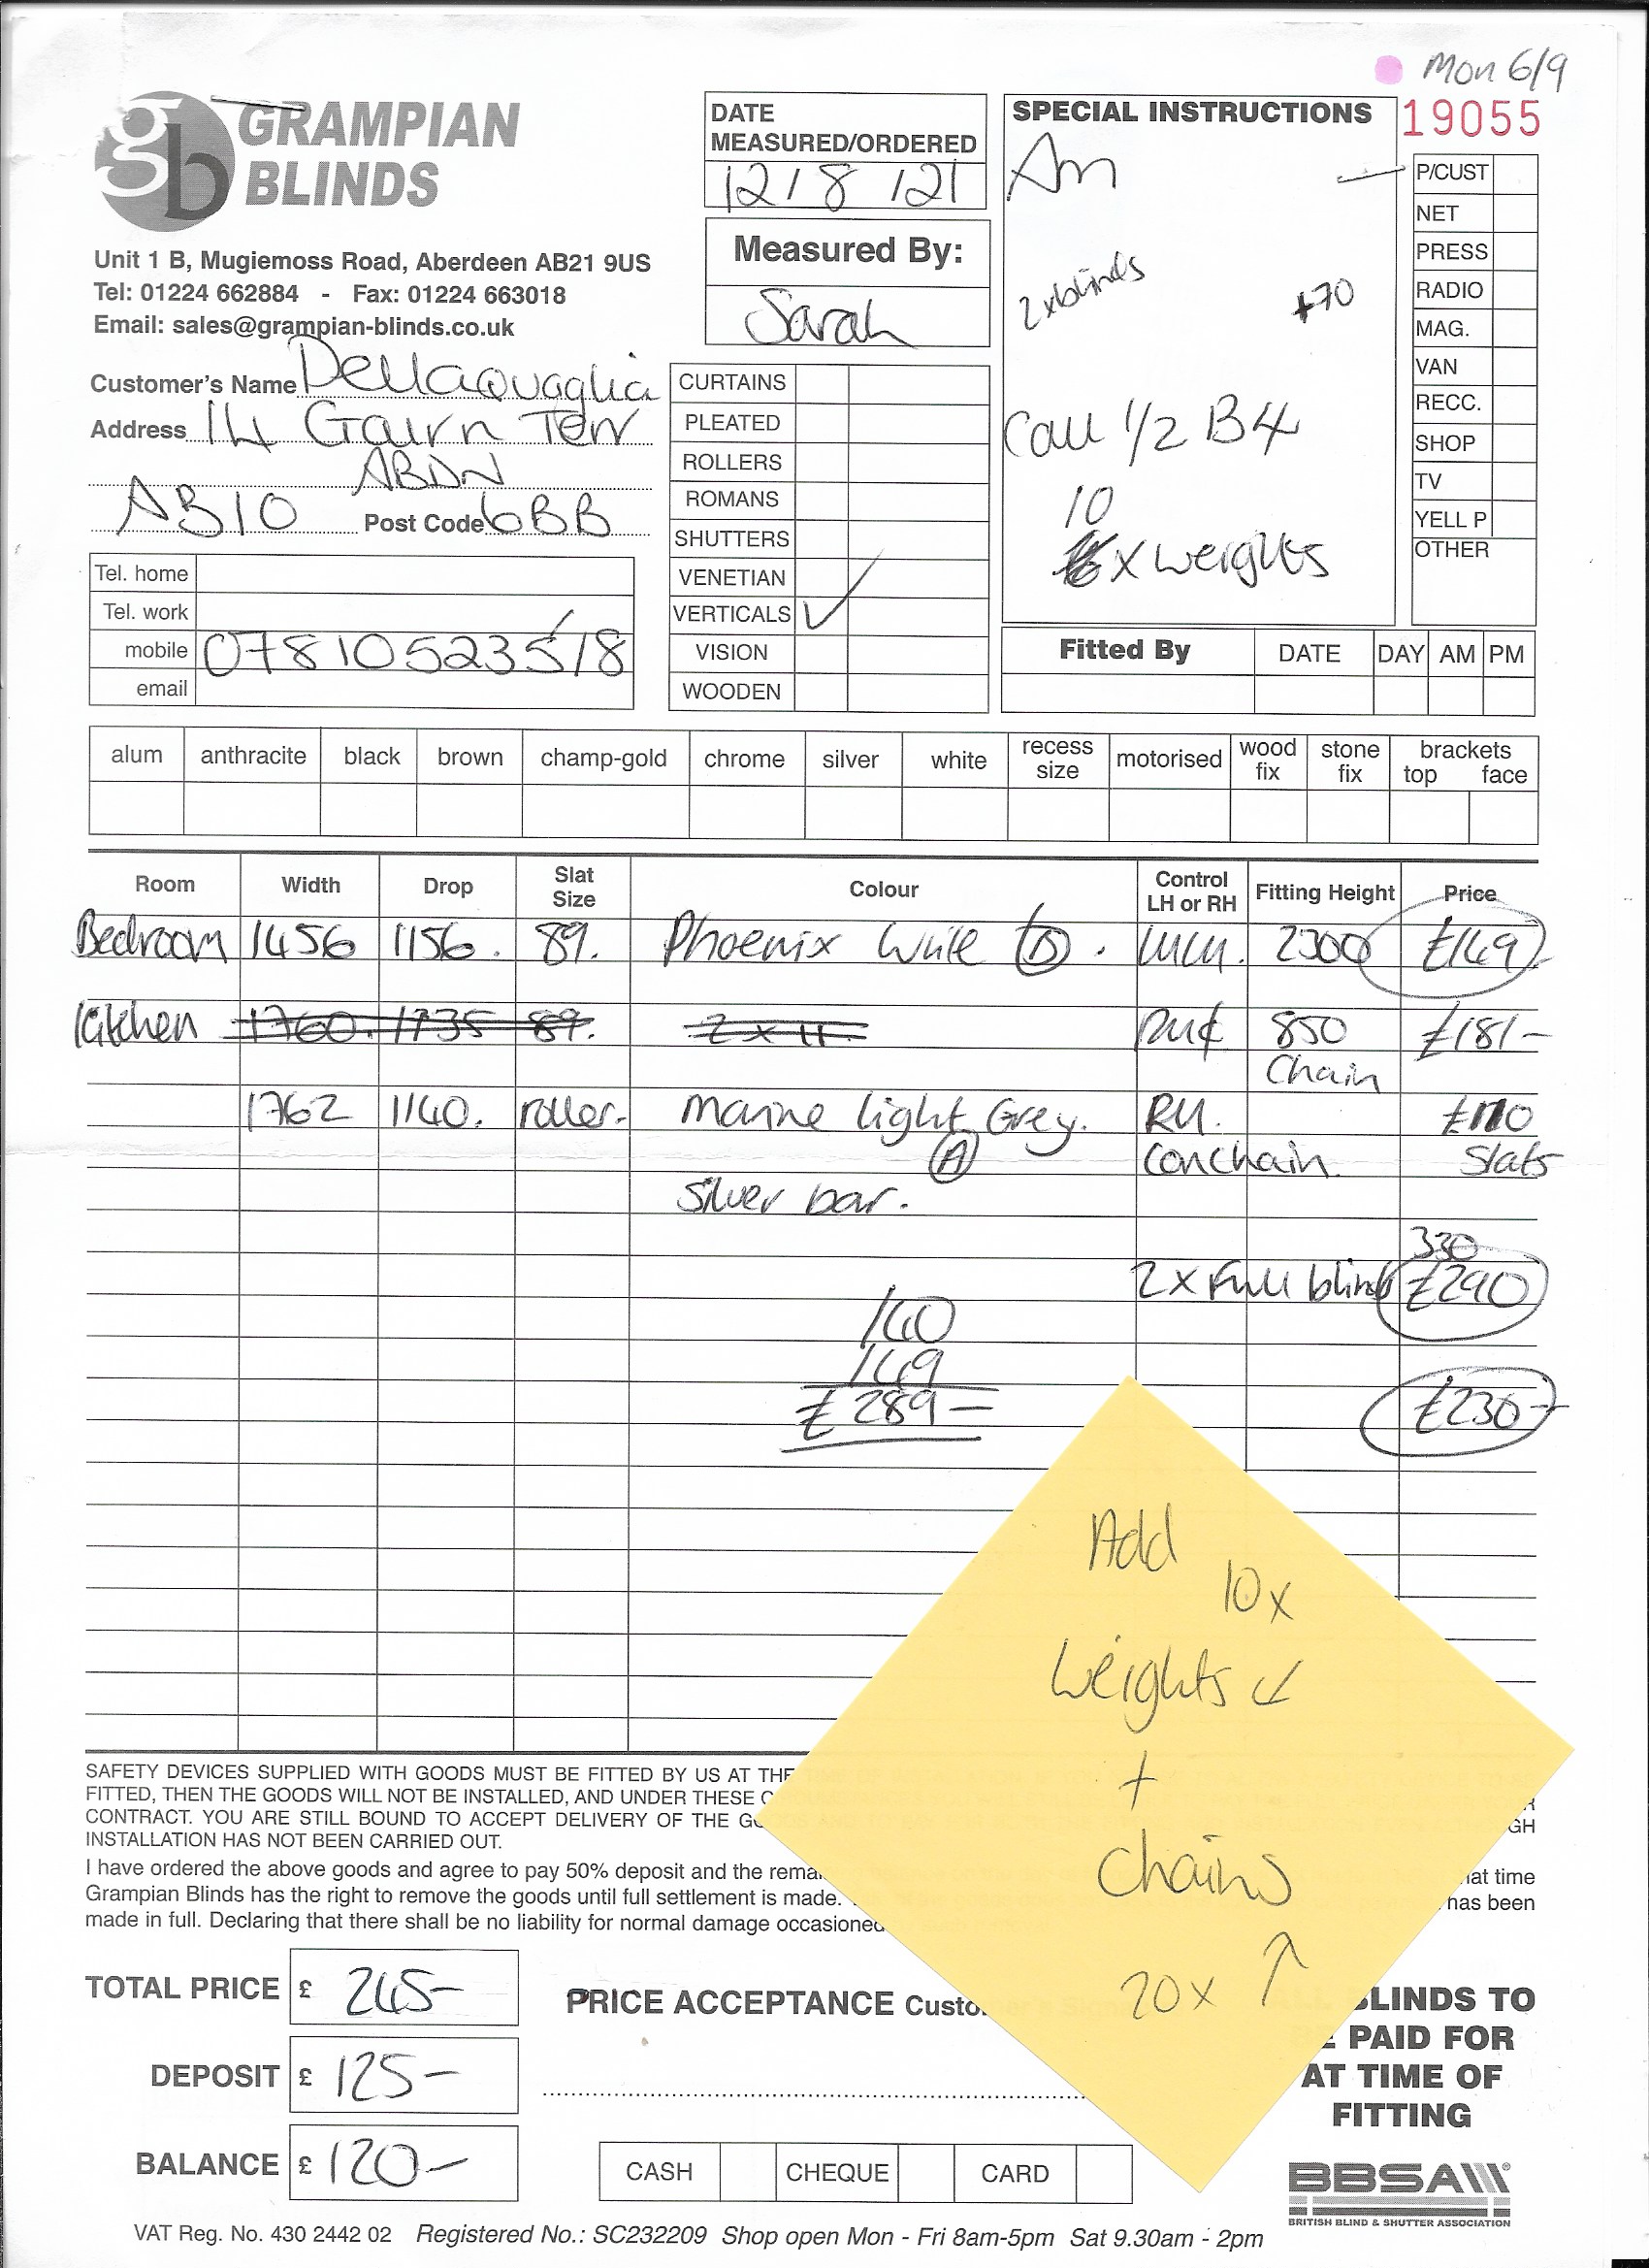 Mon 6/9
19055
GRAMPIAN
BLINDS
gb
Unit 1 B, Mugiemoss Road, Aberdeen AB21 9US
Tel: 01224 662884 - Fax: 01224 663018
Email: sales@grampian-blinds.co.uk
DATE
MEASURED/ORDERED
12/8/21
Measured By:
Sarah
SPECIAL INSTRUCTIONS
Am
2xblinds +70
Call 1/2 B4
10
x weights
P/CUST
NET
PRESS
RADIO
MAG.
VAN
RECC.
SHOP
TV
YELL P
OTHER
Customer's Name Dellaquaglia
Address 14 Gairn Terr
ABDN
AB10 Post Code 6BB
Tel. home
Tel. work
mobile 07810523518
email
CURTAINS
PLEATED
ROLLERS
ROMANS
SHUTTERS
VENETIAN
VERTICALS ✓
VISION
WOODEN
Fitted By DATE DAY AM PM
alum anthracite black brown champ-gold chrome silver white recess size motorised wood fix stone fix brackets top face
Room Width Drop Slat Size Colour Control LH or RH Fitting Height Price
Bedroom 1456 1156. 89. Phoenix White (B). 2300 £149
Kitchen 1760. 1735 89. 2 x 11. 850 £181-
Chain
1762 1140. roller. Marine light Grey. RH. £110
(A) Conchain Slats
Silver bar.
330
2 x Full blind £290
140
149
£289-
£230-
Add 10x
Weights ↙
+
Chains
20x ↑
SAFETY DEVICES SUPPLIED WITH GOODS MUST BE FITTED BY US AT THE
FITTED, THEN THE GOODS WILL NOT BE INSTALLED, AND UNDER THESE
CONTRACT. YOU ARE STILL BOUND TO ACCEPT DELIVERY OF THE
INSTALLATION HAS NOT BEEN CARRIED OUT.
I have ordered the above goods and agree to pay 50% deposit and the rema at time
Grampian Blinds has the right to remove the goods until full settlement is made. has been
made in full. Declaring that there shall be no liability for normal damage occasioned
TOTAL PRICE £ 245-
DEPOSIT £ 125-
BALANCE £ 120-
PRICE ACCEPTANCE Custo
BLINDS TO
BE PAID FOR
AT TIME OF
FITTING
CASH CHEQUE CARD
BBSA
BRITISH BLIND & SHUTTER ASSOCIATION
VAT Reg. No. 430 2442 02 Registered No.: SC232209 Shop open Mon - Fri 8am-5pm Sat 9.30am - 2pm